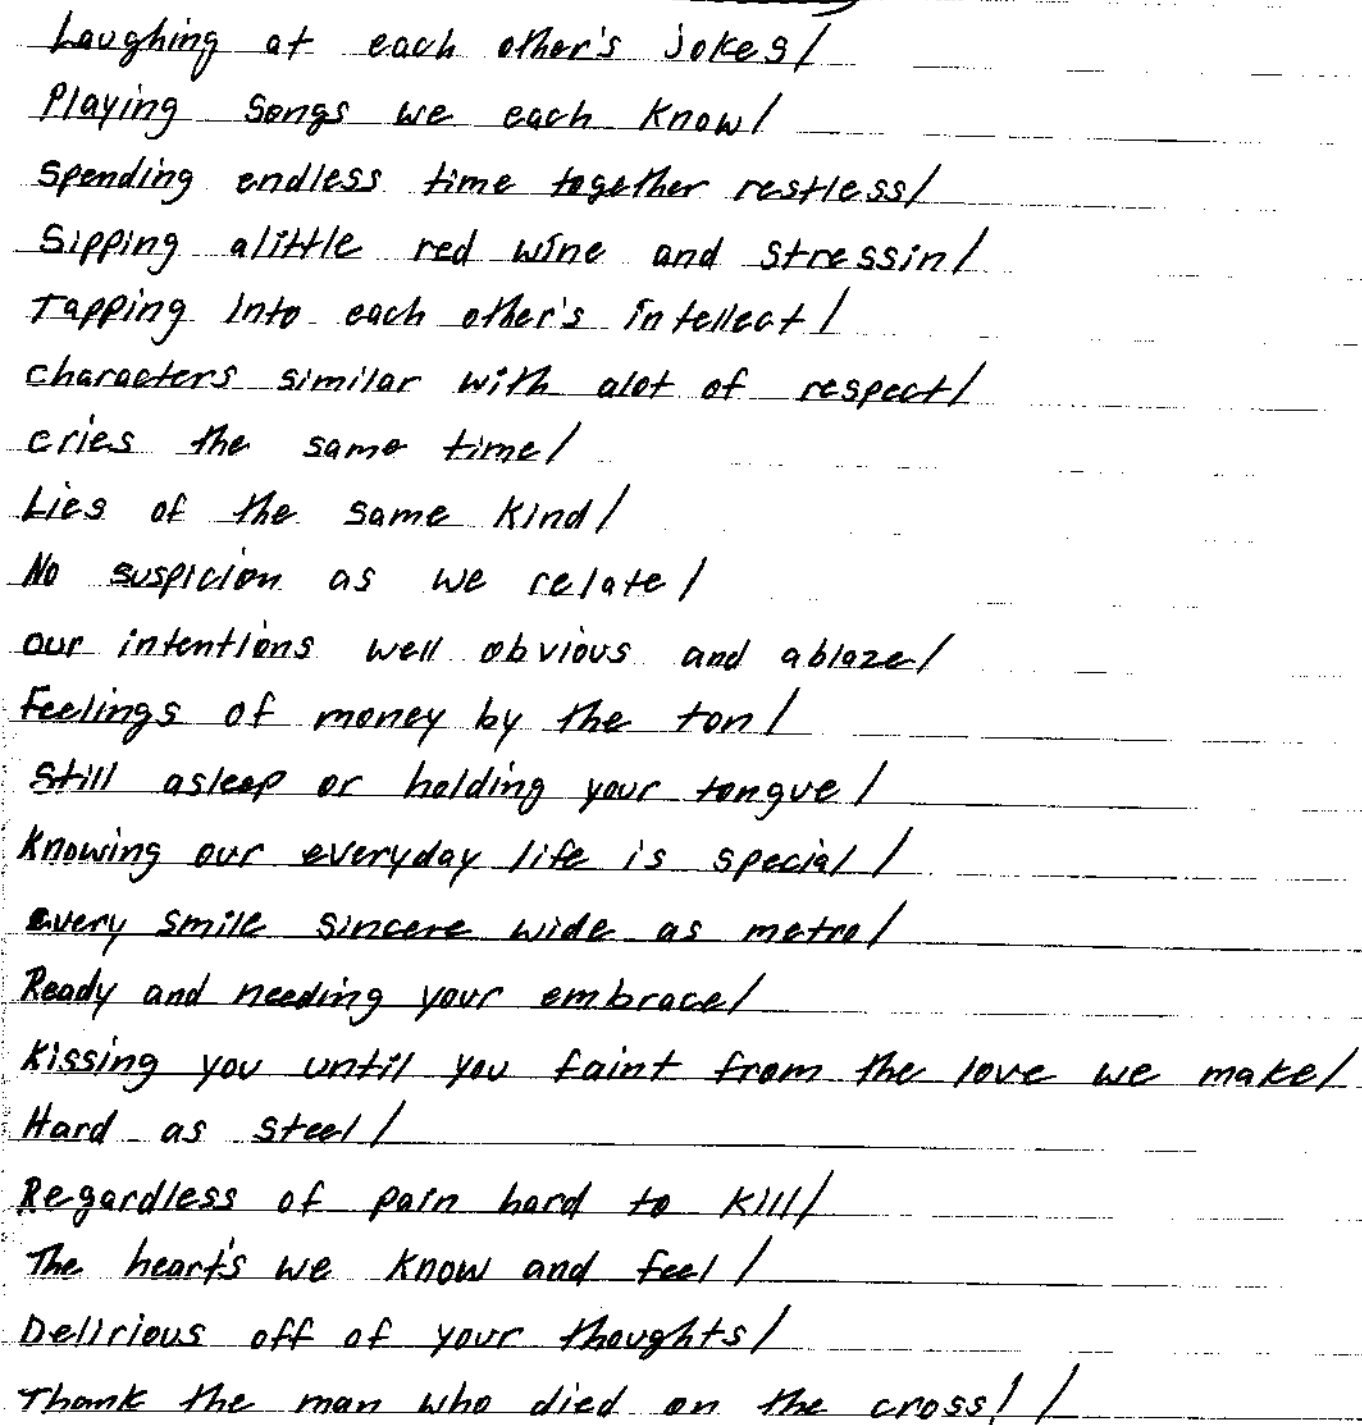 Laughing at each other's jokes/
Playing songs we each know/
Spending endless time together restless/
Sipping alittle red wine and stressin/
Tapping into each other's intellect/
characters similar with alot of respect/
cries the same time/
Lies of the same kind/
No suspicion as we relate/
our intentions well obvious and ablaze/
Feelings of money by the ton/
Still asleep or holding your tongue/
Knowing our everyday life is special/
every smile sincere wide as metro/
Ready and needing your embrace/
Kissing you until you faint from the love we make/
Hard as steel/
Regardless of pain hard to kill/
The heart's we know and feel/
Delirious off of your thoughts/
Thank the man who died on the cross! /